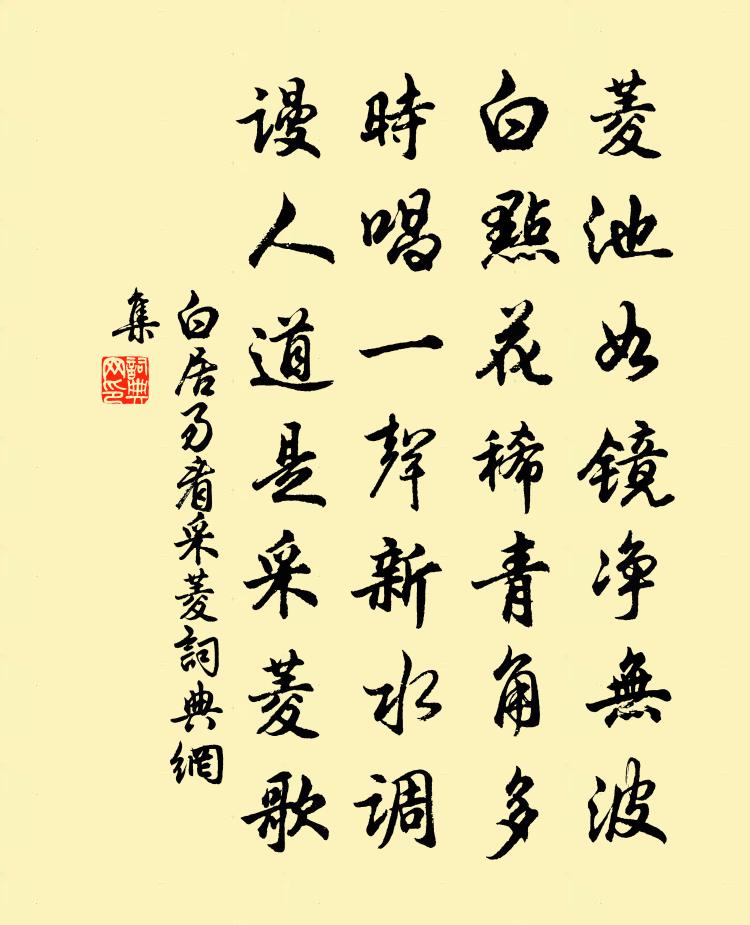 菱池如镜净無波
白點花稀青角多
時唱一聲新水调
谩人道是采菱歌
白居易看采菱詞典網
集
詞典网印